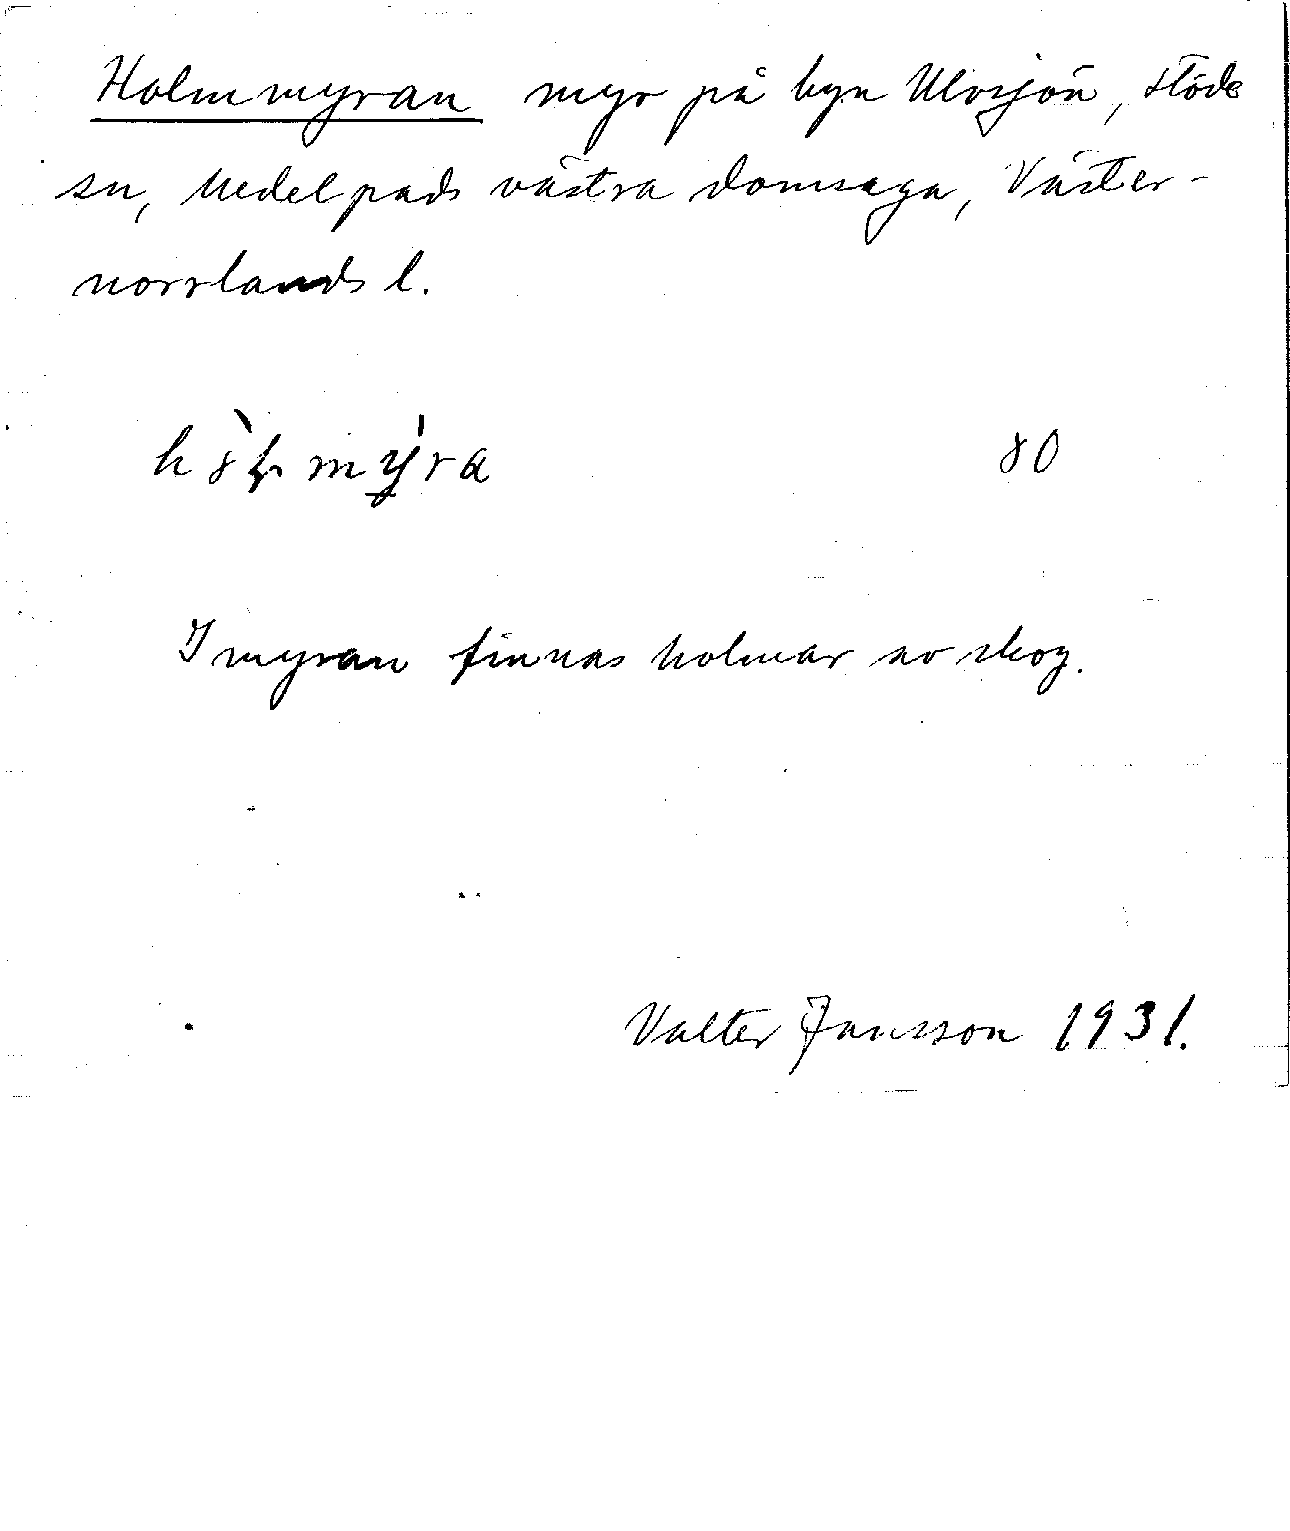 Holmmyran myr på byn Ulvsjön, Stöde
sn, Medelpads västra domsaga, Väster-
norrlands l.
80
I myran finnas holmar av skog.
Valter Jansson 1931.